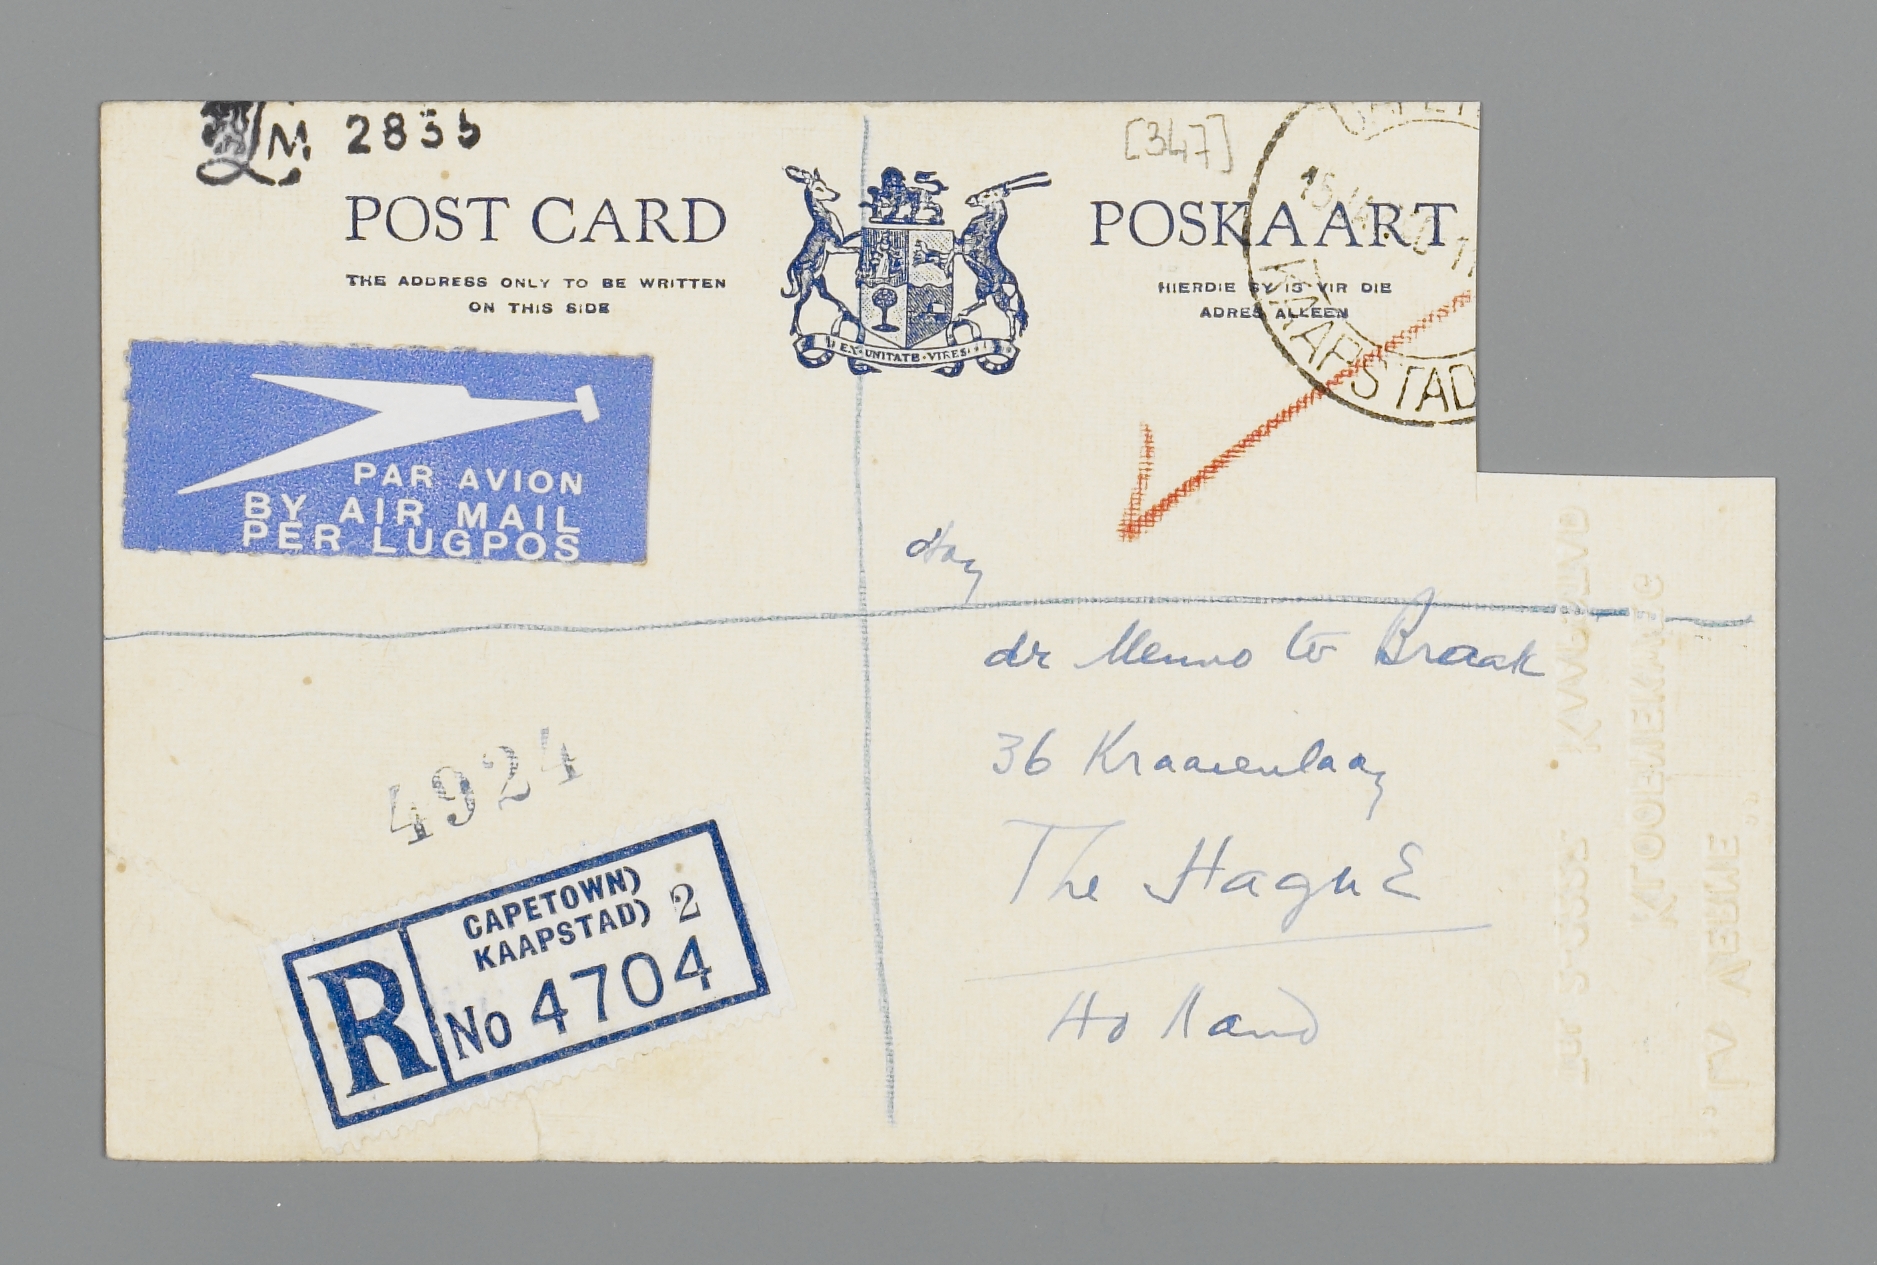 LM 2835
[347]
POST CARD
POSKAART
THE ADDRESS ONLY TO BE WRITTEN
ON THIS SIDE
HIERDIE SY IS VIR DIE
ADRES ALLEEN
EX UNITATE VIRES
KAAPSTAD
PAR AVION
BY AIR MAIL
PER LUGPOS
dr Menno ter Braak
36 Kraaienlaan
The HaguE
Holland
4924
R
CAPETOWN)
KAAPSTAD) 2
No 4704
"LA VERNE"
KLOOFNEKWEG
KAAPSTAD